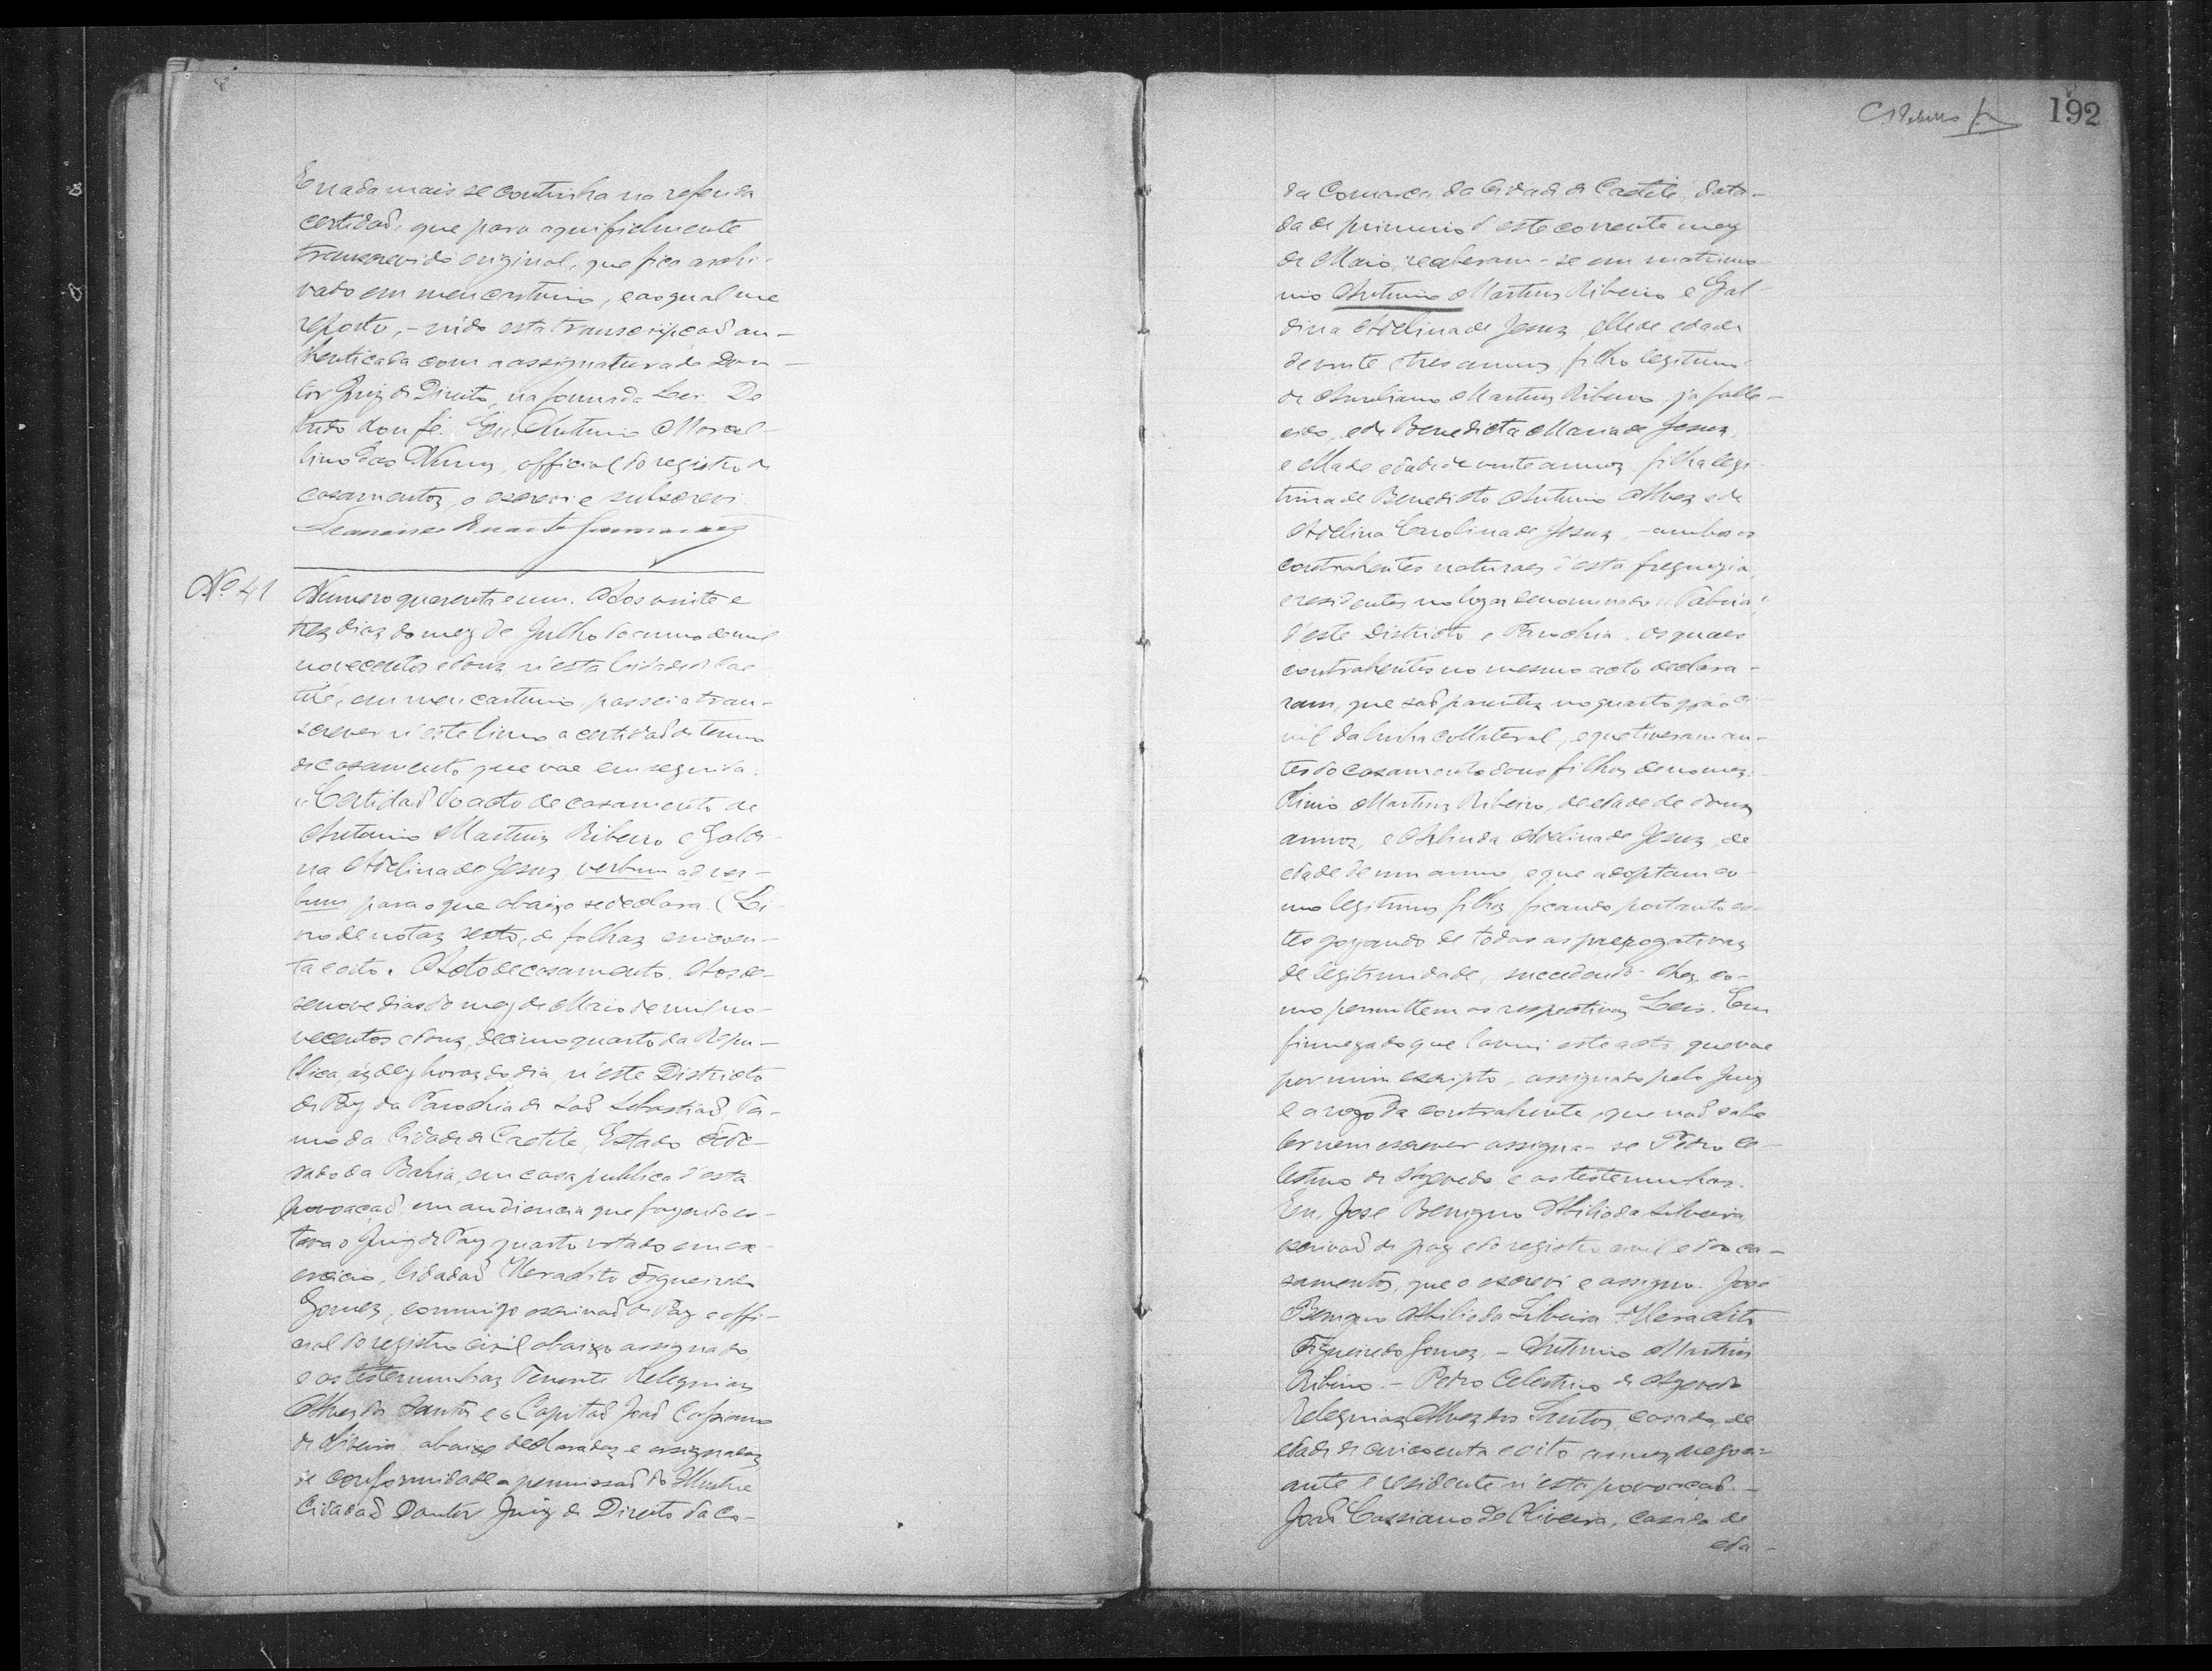 E nada mais se continha na referida
certidaõ, que para aqui fielmente
transcrevi do original, que fica archi-
vado em meu cartorio, e ao qual me
reporto, - indo esta transcripçaõ au-
thenticada com a assignatura do Dou-
tor Juiz de Direito, na forma da Lei. De
tudo dou fé. Eu, Antonio Marcel-
lino das Neves, official do registro de
casamentos, o escrevi e subscrevi.
Francisco Duarte Guimarães
Nº 41
Numero quarenta e um. Aos vinte e
trez dias do mez de Julho do anno de mil
novecentos e douz, n'esta Cidade de Cae-
tité, em meu cartorio, passei a tran-
screver n'este livro a certidaõ do termo
de casamento, que vae em seguida:
"Certidaõ do acto de casamento de
Antonio Martins Ribeiro e Galdi-
na Avelina de Jesuz, verbum ad ver-
bum para o que abaixo se declara. (Li-
vro de notaz sexto, de folhaz cincoen-
ta e oito. Acto de casamento. Aos de-
senove dias do mez de Maio de mil no-
vecentos e douz, decimo quarto da Repu-
blica, áz dez horaz do dia, n'este Districto
de Paz da Parochia de Saõ Sebastiaõ, Ter-
mo da Cidade de Caetité, Estado Fede-
rado da Bahia, em casa publica d'esta
povoaçaõ, em audiencia que fazendo es-
tava o Juiz de Paz quarto votado em ex-
ercicio, Cidadaõ Heraclito Figueiredo
Gomez, commigo escrivaõ de Paz e offi-
cial do registro civil abaixo assignado,
e as testemunhaz Tenente Reliquiaz
Alvez dos Santos e o Capitaõ Joaõ Cassiano
de Oliveira, abaixo declaradaz e assignadaz
de conformidade a permissaõ do Illustre
Cidadaõ Doutor Juiz de Direito da Co-
192
da Comarca da Cidade de Caetité, data-
da de primeiro d'este corrente mez
de Maio, receberam-se em matrimo-
nio Antonio Martins Ribeiro e Gal-
dina Avelina de Jesuz, elle de edade
de vinte e tres annoz, filho legitimo
de Aureliano Martins Ribeiro, já falle-
cido, e de Benedicta Maria de Jesuz,
e ella de edade de vinte annoz, filha legi-
tima de Benedicto Antonio Alvez e de
Avelina Carolina de Jesuz, - ambos os
contrahentes naturaes d'esta freguezia,
e residentes no lugar denominado
d'este Districto e Parochia. Os quaes
contrahentes no mesmo acto declara-
ram, que saõ parentez no quarto gráo ci-
vil da linha collateral, e que tiveram an-
tes do casamento dous filhos de nomez:
Martins Ribeiro, de edade de douz
annoz, e Arlinda Avelina de Jesuz, de
edade de um anno, e que adoptam co-
mo legitimos filhoz, ficando portanto es-
tes gozando de todas as prerogativaz
de legitimidade, succedendo-lhez, co-
mo permittem as respectivaz Leis. Em
firmeza do que lavrei este acto, que vae
por mim escripto, assignado pelo Juiz
e a rogo da contrahente, que naõ sabe
ler nem escrever assigna-se Pedro Ce-
lestino de Azevedo e as testemunhas.
Eu, Jose Benigno Abilio da Silveira,
escrivaõ de paz e do registro civil e dos ca-
samentos, que o escrevi e assigno. Jose
Benigno Abilio da Silveira. Heraclito
Figueiredo Gomez. - Antonio Martins
Ribeiro. - Pedro Celestino de Azevedo
Reliquiaz Alvez dos Santoz, casado, de
edade de cincoenta e oito annoz, negoci-
ante e residente n'esta povoaçaõ. -
Joaõ Cassiano de Oliveira, casado de
eda-